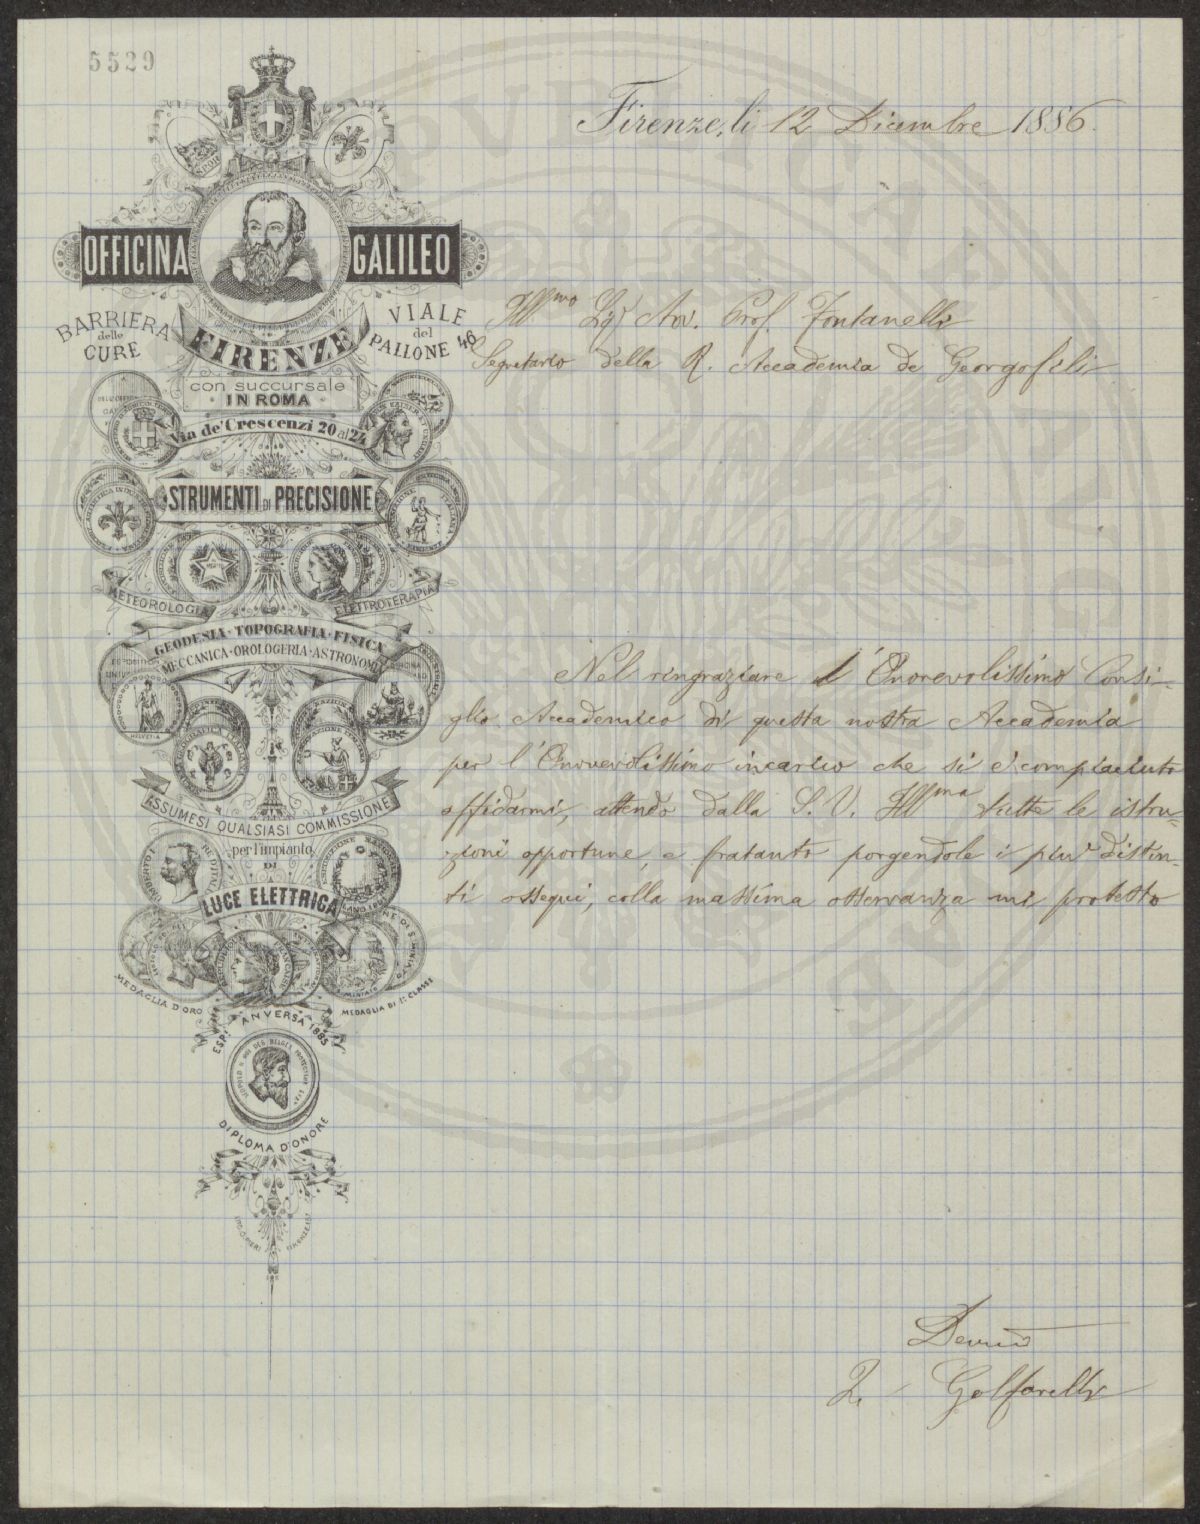 5529
Firenze, li 12 Dicembre 1886.
SPQR
OFFICINA GALILEO
BARRIERA
delle
CURE
FIRENZE
VIALE
del
PALLONE 46
con succursale
IN ROMA
Via de' Crescenzi 20 al 24
STRUMENTI DI PRECISIONE
METEOROLOGIA
ELETTROTERAPIA
GEODESIA · TOPOGRAFIA · FISICA
MECCANICA · OROLOGERIA · ASTRONOMIA
HELVETIA
ASSUMESI QUALSIASI COMMISSIONE
per l'impianto
DI
LUCE ELETTRICA
UMBERTO I RE D'ITALIA
MEDAGLIA D'ORO
MEDAGLIA DI 1a CLASSE
ESP. ANVERSA 1885
DIPLOMA D'ONORE
Illmo Sigr Avv. Prof. Fontanelli
Segretario della R. Accademia de Georgofili
Nel ringraziare l'Onorevolissimo Consi-
glio Accademico di questa nostra Accademia
per l'Onorevolissimo incarico che si è compiaciuto
affidarmi, attendo dalla S. V. Illma tutte le istru-
zioni opportune, e fratanto porgendole i piu' distin-
ti ossequi, colla massima osservanza mi protesto
Devmo
Golfarelli